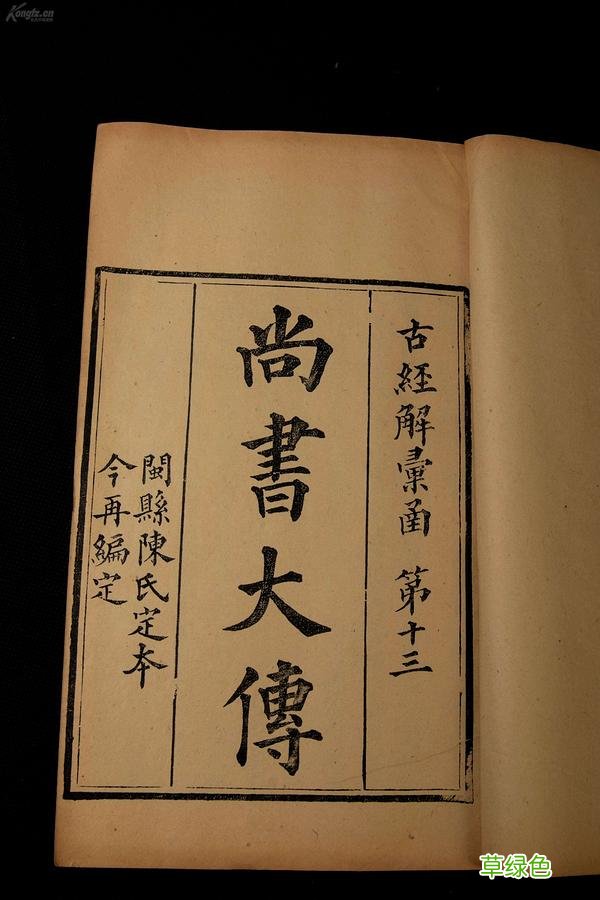 Kongfz.cn
古經解彙函 第十三
尚書大傳
閩縣陳氏定本
今再編定
草绿色